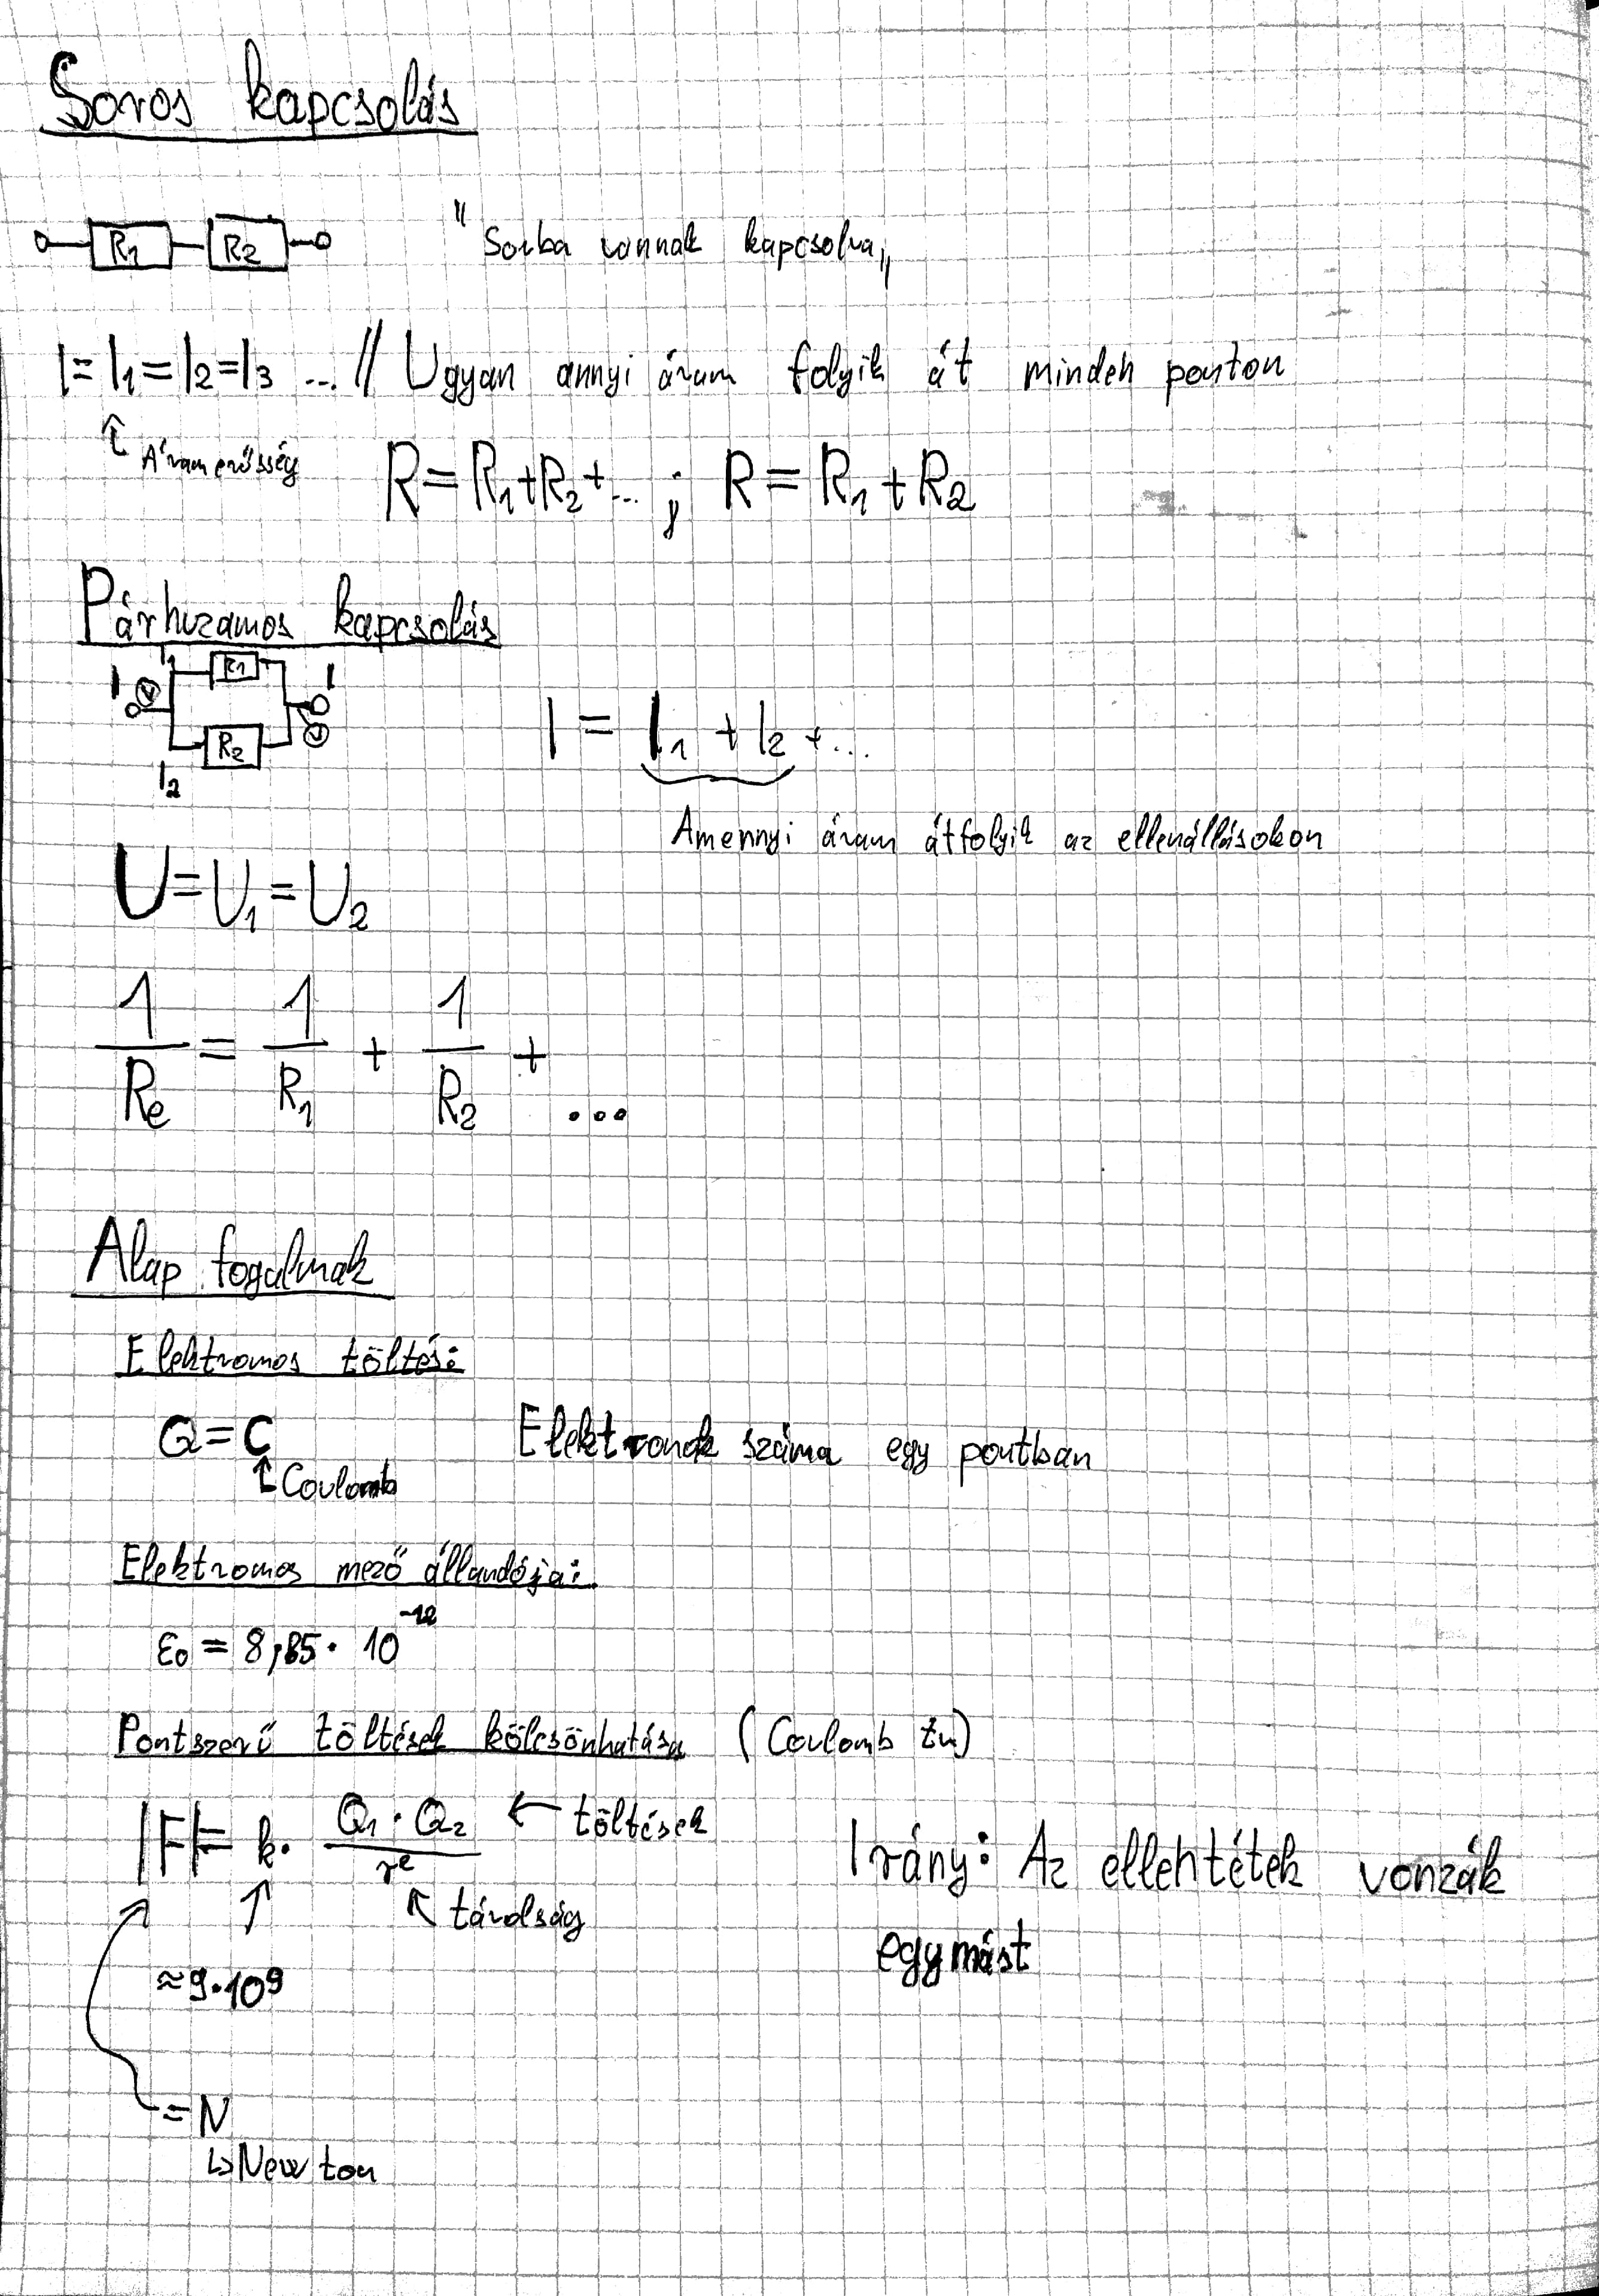 Soros kapcsolás
R1 R2 "Sorba vannak kapcsolva„
I = I1 = I2 = I3 ... // Ugyan annyi áram folyik át minden ponton
↑ Áramerősség
R = R1 + R2 + ... ; R = R1 + R2
Párhuzamos kapcsolás
I1 R1
I V I
R2 U
I2
I = I1 + I2 + ...
Amennyi áram átfolyik az ellenállásokon
U = U1 = U2
1/Re = 1/R1 + 1/R2 + ...
Alap fogalmak
Elektromos töltés:
Q = C Elektronok száma egy pontban
↑ Coulomb
Elektromos mező állandója:
ε0 = 8,85 · 10^-12
Pontszerű töltések kölcsönhatása (Coulomb tv)
|F| = k · Q1 · Q2 / r² ← töltések
↖ távolság
Irány: Az ellentétek vonzák
egymást
≈ 9 · 10^9
= N
↳ Newton